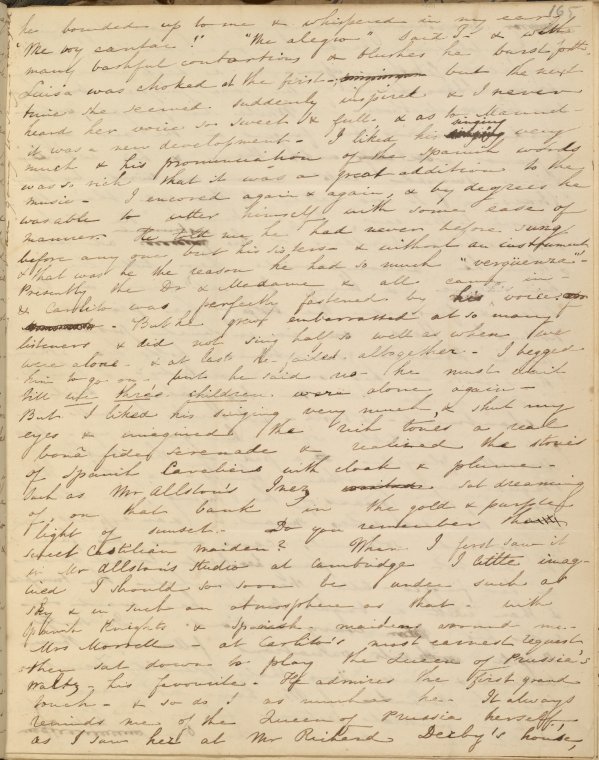 165
he bounded up to me & whispered in my ear,
"Me voy cantar!" "Me alegro" said I - & with
many bashful contortions & blushes he burst forth.
Luisa was choked at the first - but the next
time she seemed suddenly inspired & I never
heard her voice so sweet & full, & as to Manuel -
it was a new development - I liked his singing very
much & his pronunciation of the Spanish words
was so rich that it was a great addition to the
music - I encored again & again, & by degrees he
was able to utter himself with some ease of
manner. He told me he had never before sung
before any one but his sisters - & without an instrument
& that was he the reason he had so much "vergüenza" -
Presently the Dr & Madame & all came in -
& Carlito was perfectly fastened by his voice
But he grew embarrassed at so many
listeners & did not sing half so well as when we
were alone - & at last he failed altogether - I begged
him to go on - but he said no - he must wait
till we three children were alone again -
But I liked his singing very much, & shut my
eyes & imagined the rich tones a real
bonâ fide serenade & realized the stories
of Spanish Cavaliers with cloak & plume -
such as Mr Allston's Inez sat dreaming
of on that bank in the gold & purple
light of sunset - Do you remember that
sweet Castilian maiden? When I first saw it
in Mr Allston's studio at Cambridge I little imag-
ined I should so soon be under such a
sky & in such an atmosphere as that - with
Spanish Knights & Spanish maidens around me -
Mrs Morrell - at Carlito's most earnest request
then sat down to play the Queen of Prussia's
waltz - his favourite - He admires the first grand
touch - & so do I as much as he - It always
reminds me of the Queen of Prussia herself,
as I saw her at Mr Richard Derby's house,